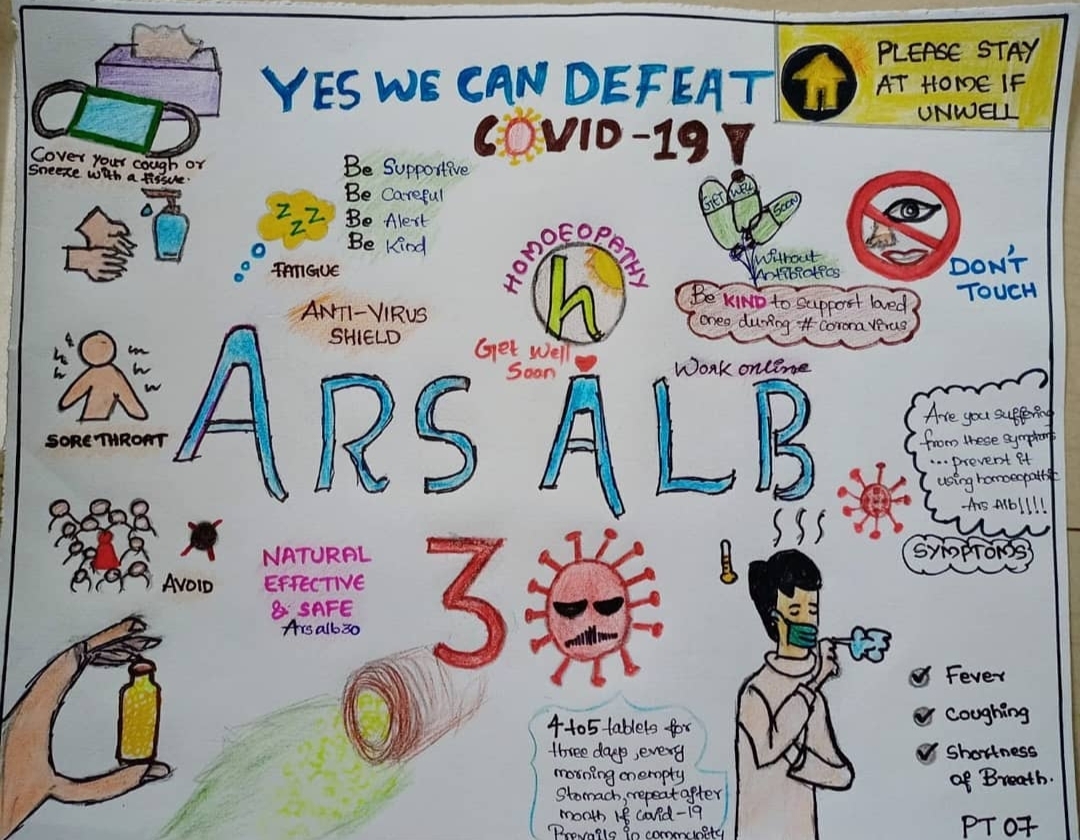 YES WE CAN DEFEAT
COVID-19
PLEASE STAY
AT HOME IF
UNWELL
Cover your cough or
Sneeze with a tissue.
Be Supportive
Be Careful
Be Alert
Be Kind
Z Z Z
FATIGUE
HOMOEOPATHY
h
GET WELL SOON
Without
Antibiotics
DON'T
TOUCH
Be KIND to support loved
ones during # corona virus
ANTI-VIRUS
SHIELD
Get Well
Soon
Work online
SORE THROAT
ARS ALB
Are you suffering
from these symptoms
... prevent it
using homoeopathic
Ars Alb!!!!
SYMPTOMS
AVOID
NATURAL
EFFECTIVE
& SAFE
Ars alb 30
30
4 to 5 tablets for
three days, every
morning on empty
Stomach, repeat after
month If Covid-19
Prevails in community
Fever
Coughing
Shortness
of Breath.
PT 07